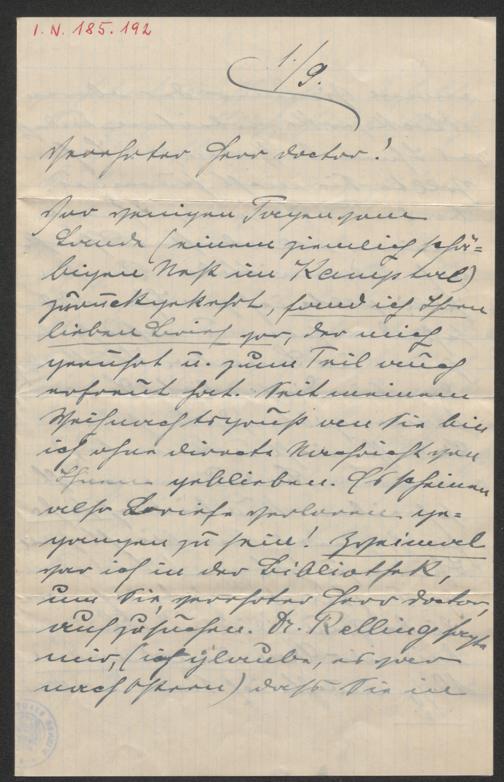 I.N. 185.192
1./9.
Verehrter Herr Doctor!
Vor wenigen Tagen vom
Lande (einem ziemlich schä-
bigen Nest im Kamptal)
zurückgekehrt, fand ich Ihren
lieben Brief vor, der mich
gerührt u. zum Teil auch
erfreut hat. Seit meinem
Weihnachtsgruß an Sie bin
ich ohne directe Nachricht von
Ihnen geblieben. Es scheinen
also Briefe verloren ge-
gangen zu sein! Zweimal
war ich in der Bibliothek,
um Sie, verehrter Herr Doctor,
aufzusuchen. Dr. Relling sagte
mir, (ich glaube, es war
nach Ostern) daß Sie in